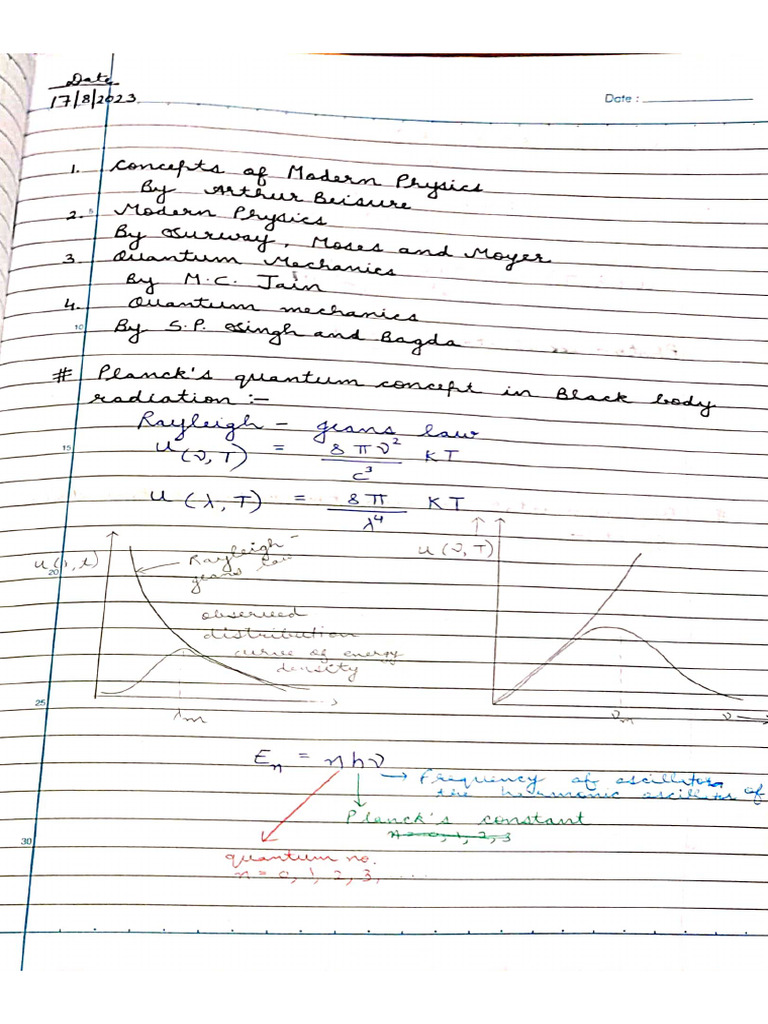 Date
17/8/2023
Date :
1. Concepts of Modern Physics
By Arthur Beisure
2. Modern Physics
By Surway, Moses and Moyer
3. Quantum Mechanics
By M.C. Jain
4. Quantum mechanics
10
By S.P. Singh and Bagda
# Planck's quantum concept in Black body
radiation :-
Rayleigh - jeans law
15
u(ν, T) = 8πν²/c³ KT
u(λ, T) = 8π/λ⁴ KT
u(λ, t)
20
Rayleigh -
jeans law
u(ν, T)
observed
distribution
curve of energy
density
25
λm
νm
ν →
Eₙ = nhν
→ Frequency of oscillators of
the harmonic oscillits
Planck's constant
n = 0, 1, 2, 3
30
quantum no.
n = 0, 1, 2, 3, ....